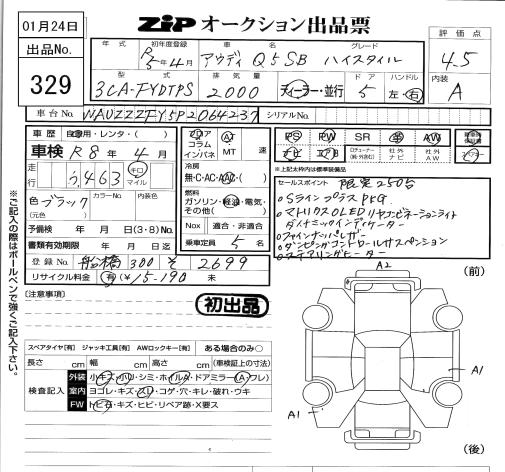 01月24日
出品No.
329
ZIP オークション出品票
年式 初年度登録 車名 グレード
R5年4月 アウディ Q5SB ハイスタイル
型式 排気量 ドア ハンドル
3CA-FYDTPS 2000 ディーラー・並行 5 左・右
評価点
4.5
内装
A
車台No. WAUZZZFY5P2064237 シリアルNo.
車歴 自家用・レンタ・( )
車検 R8年4月
走行 キロ マイル
色 ブラック (元色) カラーNo. 内装色
予備検 年 月 日(3・8)No.
書類有効期限 年 月 日迄
登録No. 船橋 300 そ 2699
リサイクル料金 (有)(¥15,190 未
フロア コラム インパネ
AT MT 速
冷房
無・C・AC・AAC・( )
燃料
ガソリン・軽油・電気・その他( )
Nox 適合・非適合
乗車定員 5 名
PS PW SR 革 AW
ナビ エアB 社外ナビ 社外AW
※上記太枠内は標準装備品
セールスポイント 限定250台
○Sラインプラス PKG
○マトリクスOLEDリヤコンビネーションライト
ダイナミックインディケーター
○ファインナッパレザー
○ダンピングコントロールサスペンション
○ステアリングヒーター
[注意事項]
初出品
スペアタイヤ[有] ジャッキ工具[有] AWロックキー[有] ある場合のみ○
長さ cm 幅 cm 高さ cm (車検証上の寸法)
検査記入
外装 小キズ・小U・シミ・ホイルダ・ドアミラー(A・ワレ)
室内 ヨゴレ・キズ・スレ・コゲ・穴・キレ・破れ・ウキ
FW トビ石・キズ・ヒビ・リペア跡・X要ス
A2
(前)
A1
A1
(後)
※ご記入の際はボールペンで強くご記入下さい。